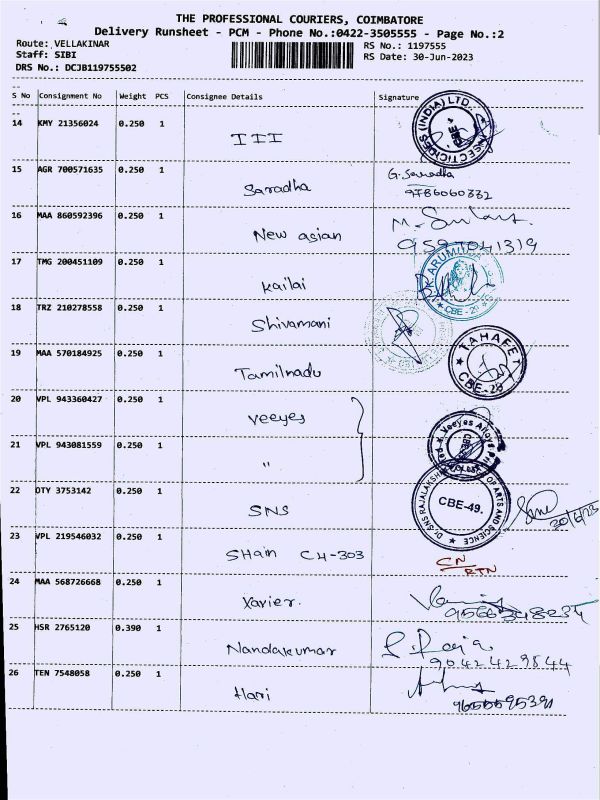 THE PROFESSIONAL COURIERS, COIMBATORE
Delivery Runsheet - PCM - Phone No.:0422-3505555 - Page No.:2
Route: VELLAKINAR RS No.: 1197555
Staff: SIBI RS Date: 30-Jun-2023
DRS No.: DCJB119755502
S No Consignment No Weight PCS Consignee Details Signature
14 KMY 21356024 0.250 1
III
INSECTICIDES (INDIA) LTD. CBE
15 AGR 700571635 0.250 1
Saradha
G. Saradha
9786060332
16 MAA 860592396 0.250 1
New asian
17 TMG 200451109 0.250 1
Kailai
CBE
18 TRZ 210278558 0.250 1
Shivamani
19 MAA 570184925 0.250 1
Tamilnadu
TAHAFET
CBE-29
20 VPL 943360427 0.250 1
Veeyes
21 VPL 943081559 0.250 1
"
Veeyes Alloys
22 OTY 3753142 0.250 1
SNS
Dr. SNS RAJALAKSHMI OF ARTS AND SCIENCE
CBE-49.
30/6/23
23 VPL 219546032 0.250 1
SHam CH-303
CN
RTN
24 MAA 568726668 0.250 1
Xavier.
25 HSR 2765120 0.390 1
Nandakumar
90424 29844
26 TEN 7548058 0.250 1
Hari